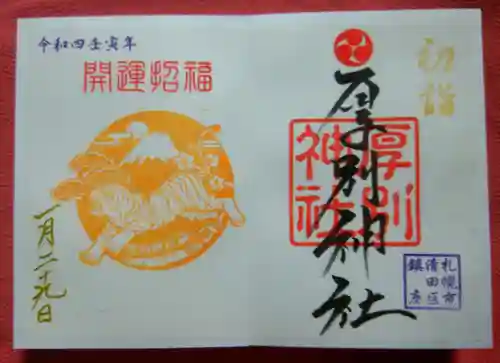 初詣
厚別神社
厚別
神社
札幌市
清田区
鎮座
令和四壬寅年
開運招福
一月二十九日